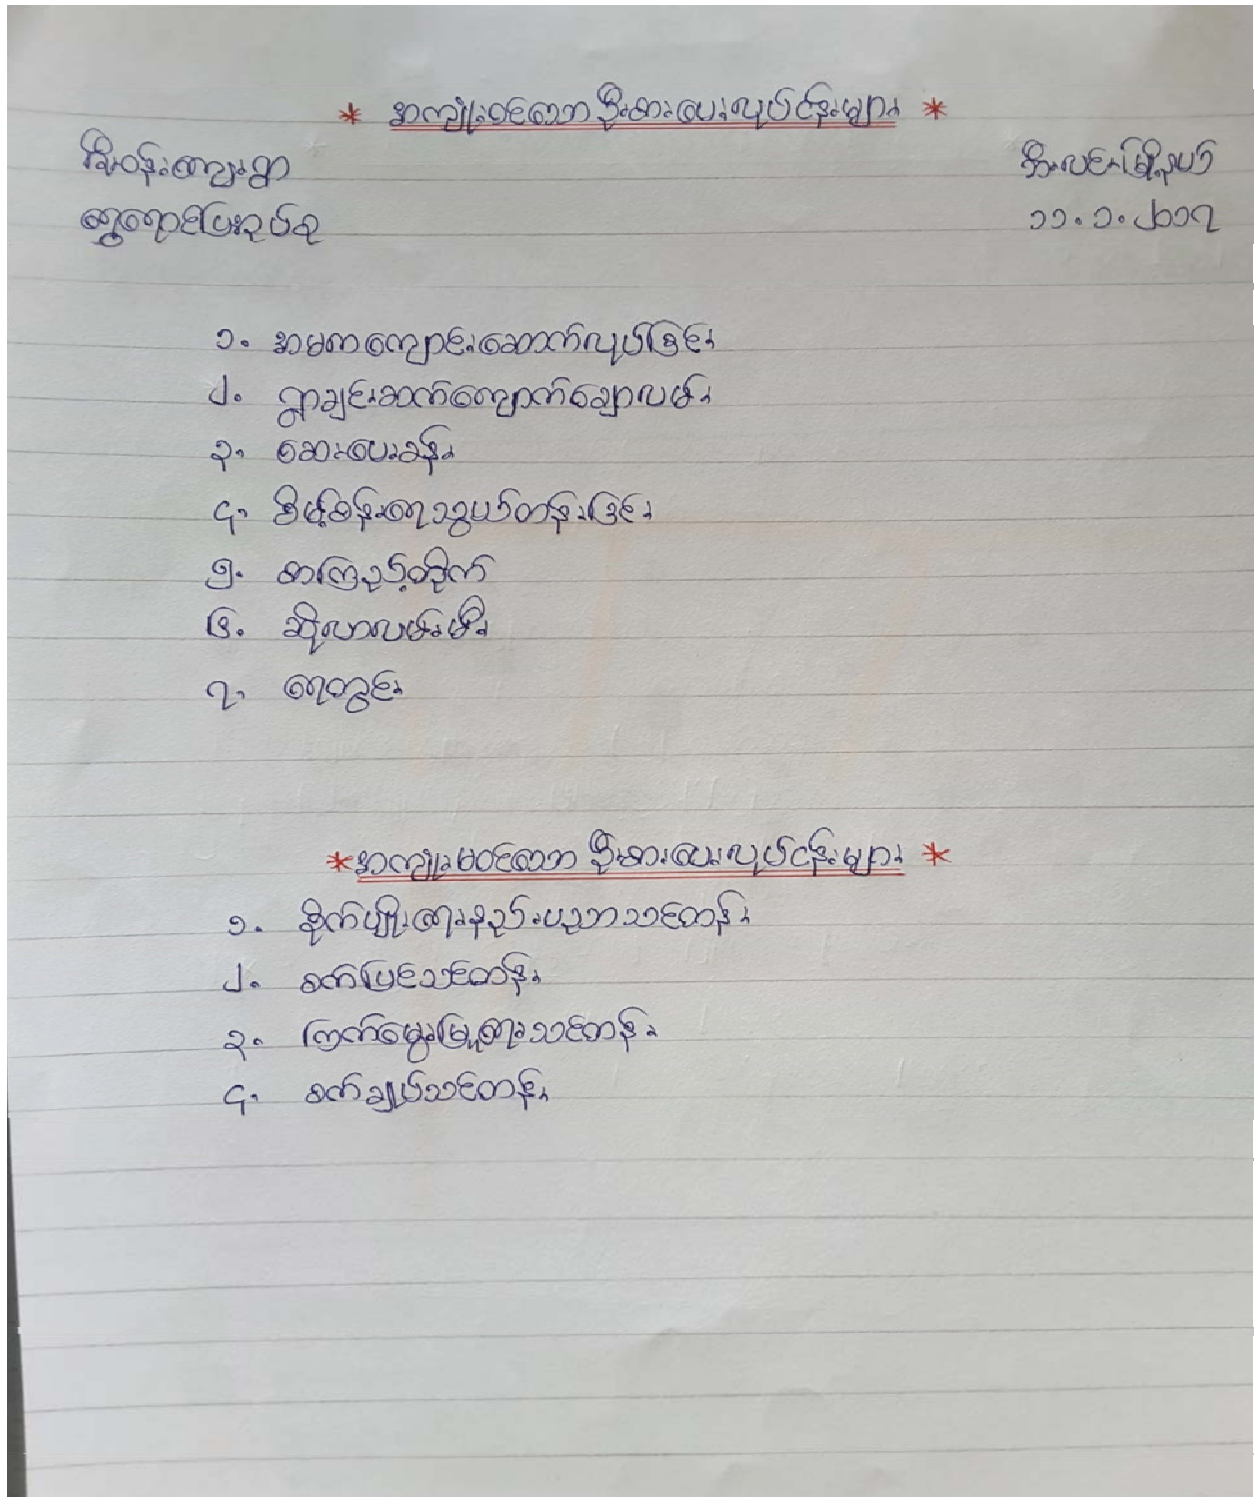 * အကျုံးဝင်သော ဦးစားပေးလုပ်ငန်းများ *
ဇီးပန်းကျေးရွာ အီးလင်းမြို့နယ်
ရွှေရောင်ပြေးအုပ်စု ၁၁.၁.၂၀၁၇
၁. အမကကျောင်းဆောက်လုပ်ခြင်း
၂. ရွာချင်းဆက်ကျောက်ချောလမ်း
၃. ဆေးပေးခန်း
၄. စိမ့်စမ်းရေသွယ်တန်းခြင်း
၅. စာကြည့်တိုက်
၆. ဆိုလာလမ်းမီး
၇. ရေတွင်း
*အကျုံးမဝင်သော ဦးစားပေးလုပ်ငန်းများ *
၁. စိုက်ပျိုးရေးနည်းပညာသင်တန်း
၂. စက်ပြင်သင်တန်း
၃. ကြက်မွေးမြူရေးသင်တန်း
၄. စက်ချုပ်သင်တန်း